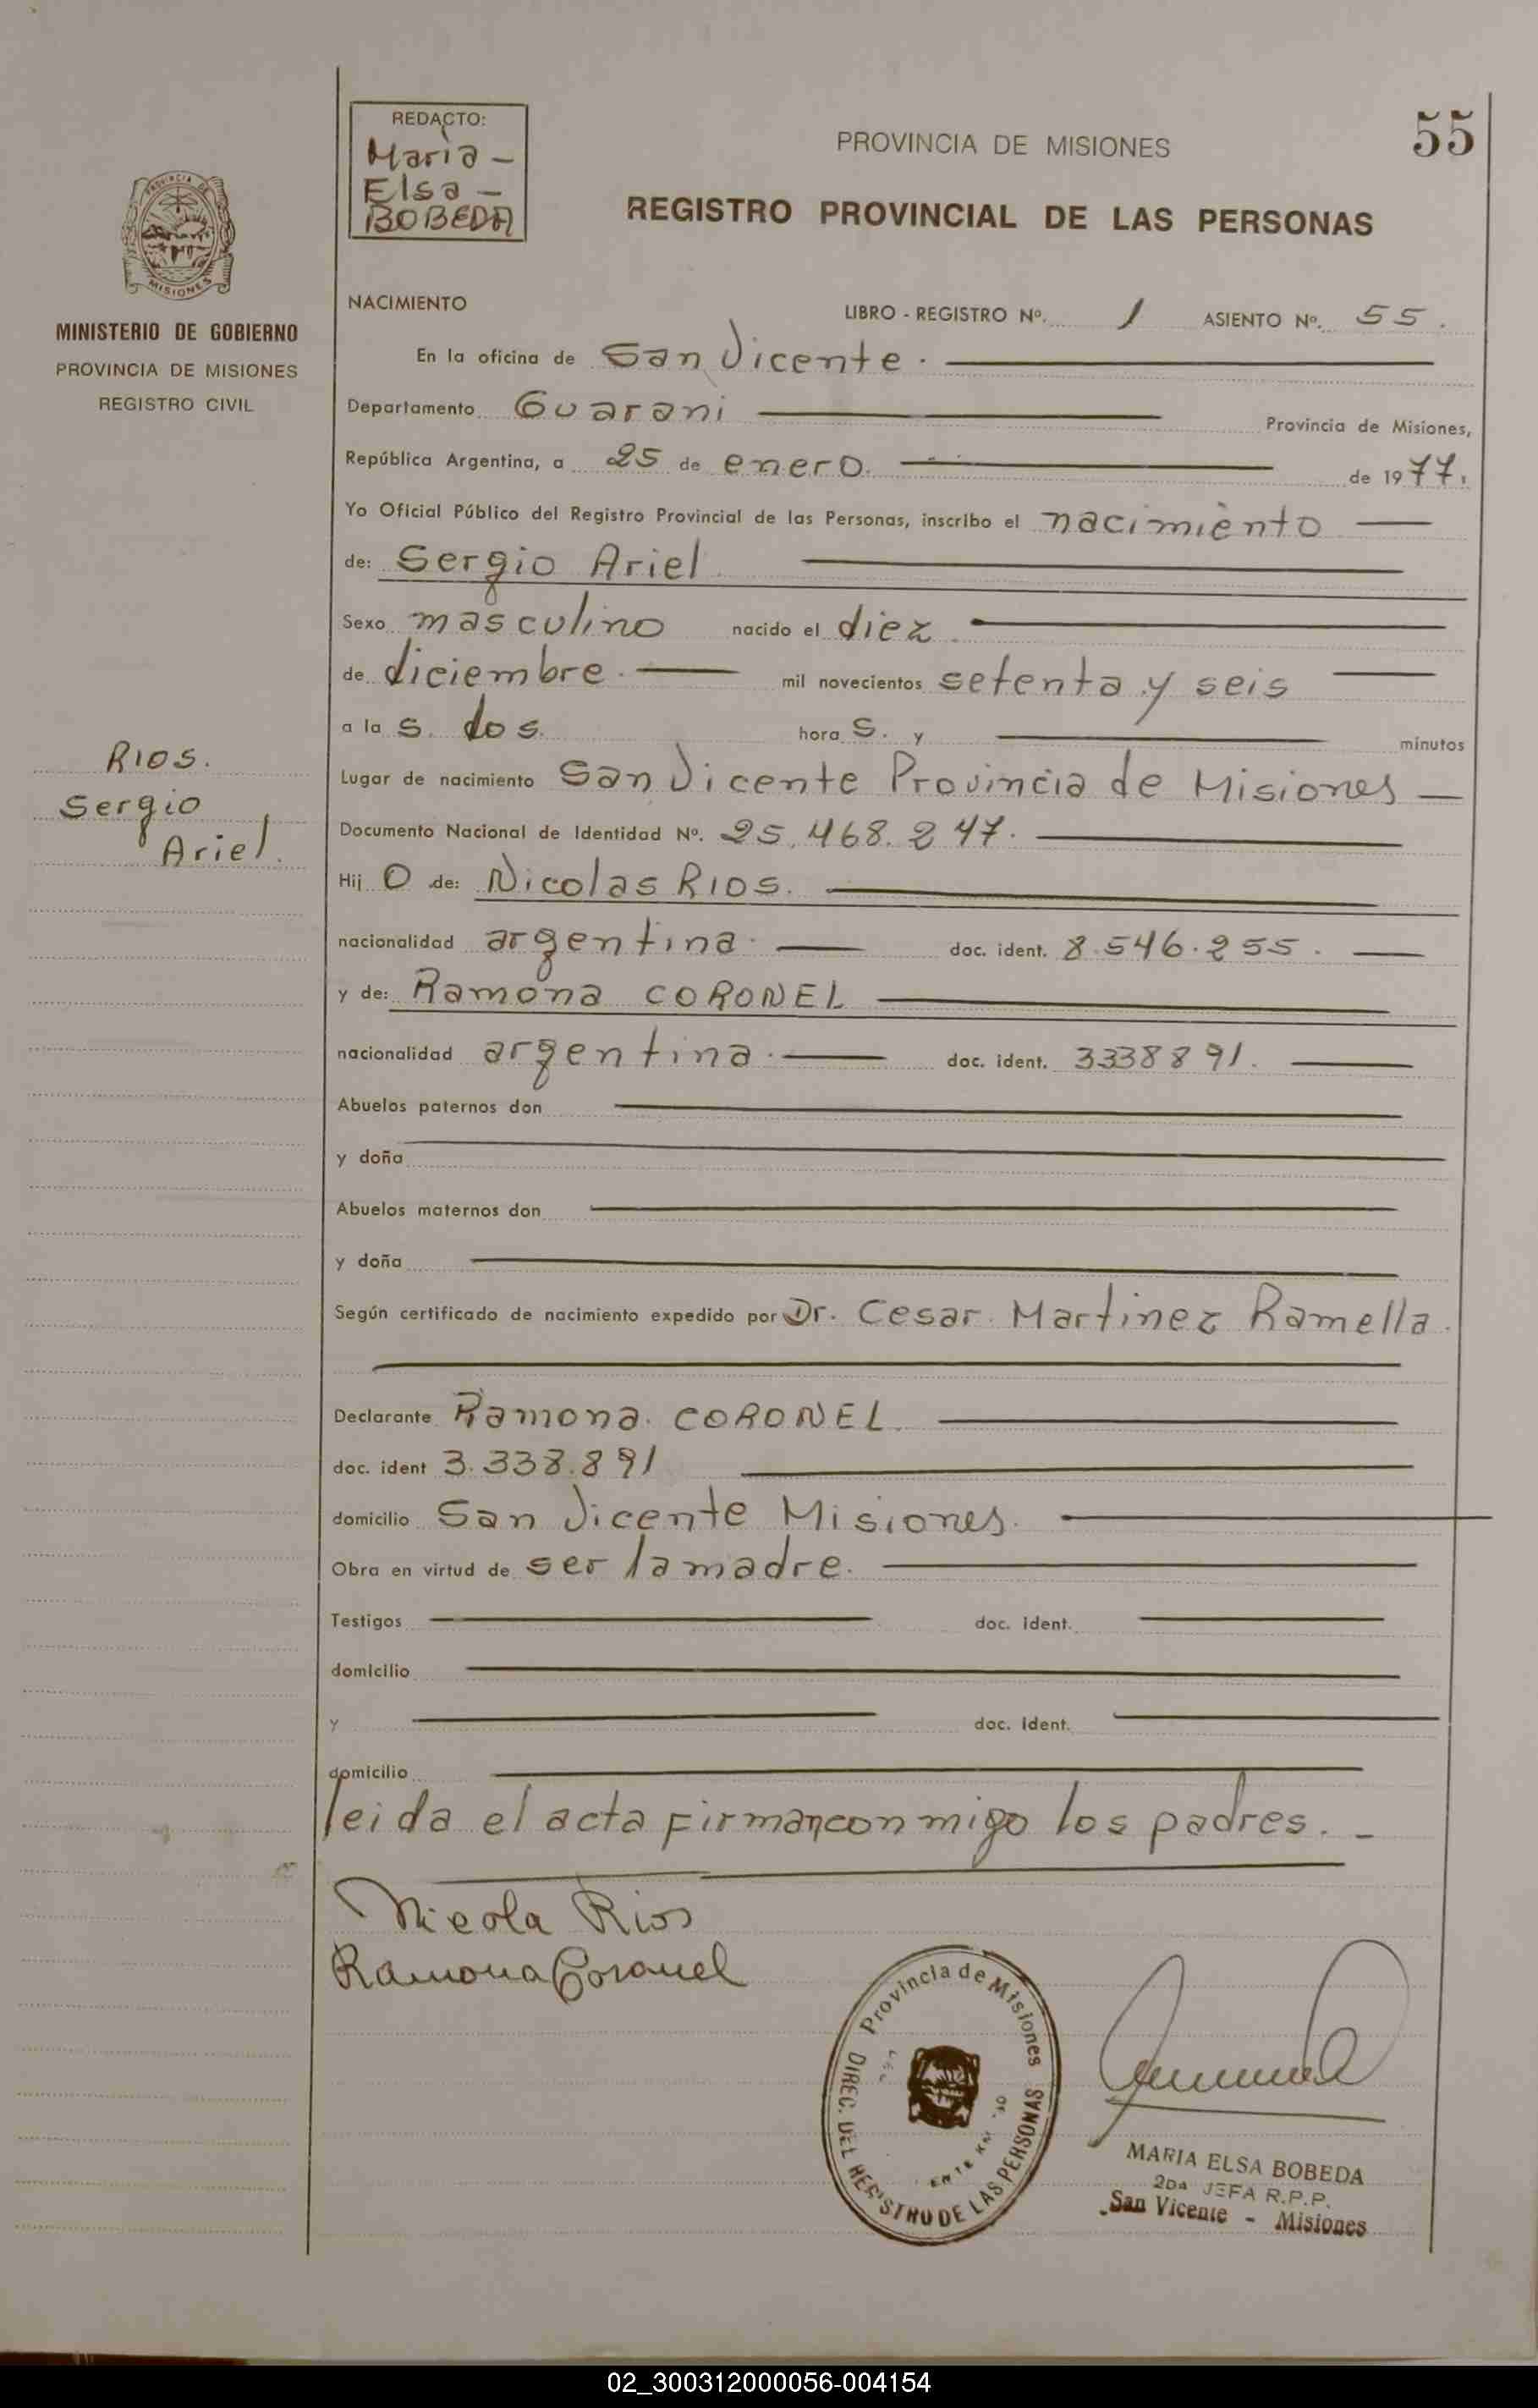 REDACTO:
Maria -
Elsa -
BOBEDA
PROVINCIA DE MISIONES
55
REGISTRO PROVINCIAL DE LAS PERSONAS
PROVINCIA DE
MISIONES
MINISTERIO DE GOBIERNO
PROVINCIA DE MISIONES
REGISTRO CIVIL
NACIMIENTO LIBRO - REGISTRO Nº. 1 ASIENTO Nº. 55.
En la oficina de San Vicente.
Departamento Guarani Provincia de Misiones,
República Argentina, a 25 de enero. de 1977.
Yo Oficial Público del Registro Provincial de las Personas, inscribo el nacimiento
de: Sergio Ariel
Sexo masculino nacido el diez
de diciembre. mil novecientos setenta y seis
a la s. dos. hora s. y minutos
RIOS.
Sergio
Ariel.
Lugar de nacimiento San Vicente Provincia de Misiones
Documento Nacional de Identidad Nº. 25.468.247.
Hij o de: Nicolas RIOS.
nacionalidad argentina. doc. ident. 8.546.255.
y de: Ramona CORONEL
nacionalidad argentina. doc. ident. 3338891.
Abuelos paternos don
y doña
Abuelos maternos don
y doña
Según certificado de nacimiento expedido por Dr. Cesar Martinez Ramella.
Declarante Ramona CORONEL.
doc. ident 3.338.891
domicilio San Vicente Misiones.
Obra en virtud de ser la madre.
Testigos doc. ident.
domicilio
y doc. ident.
domicilio
leida el acta firman conmigo los padres. -
Nicola Rios
Ramona Coronel
Provincia de Misiones
DIREC. DEL REGISTRO DE LAS PERSONAS
MARIA ELSA BOBEDA
2DA JEFA R.P.P.
San Vicente - Misiones
02_300312000056-004154